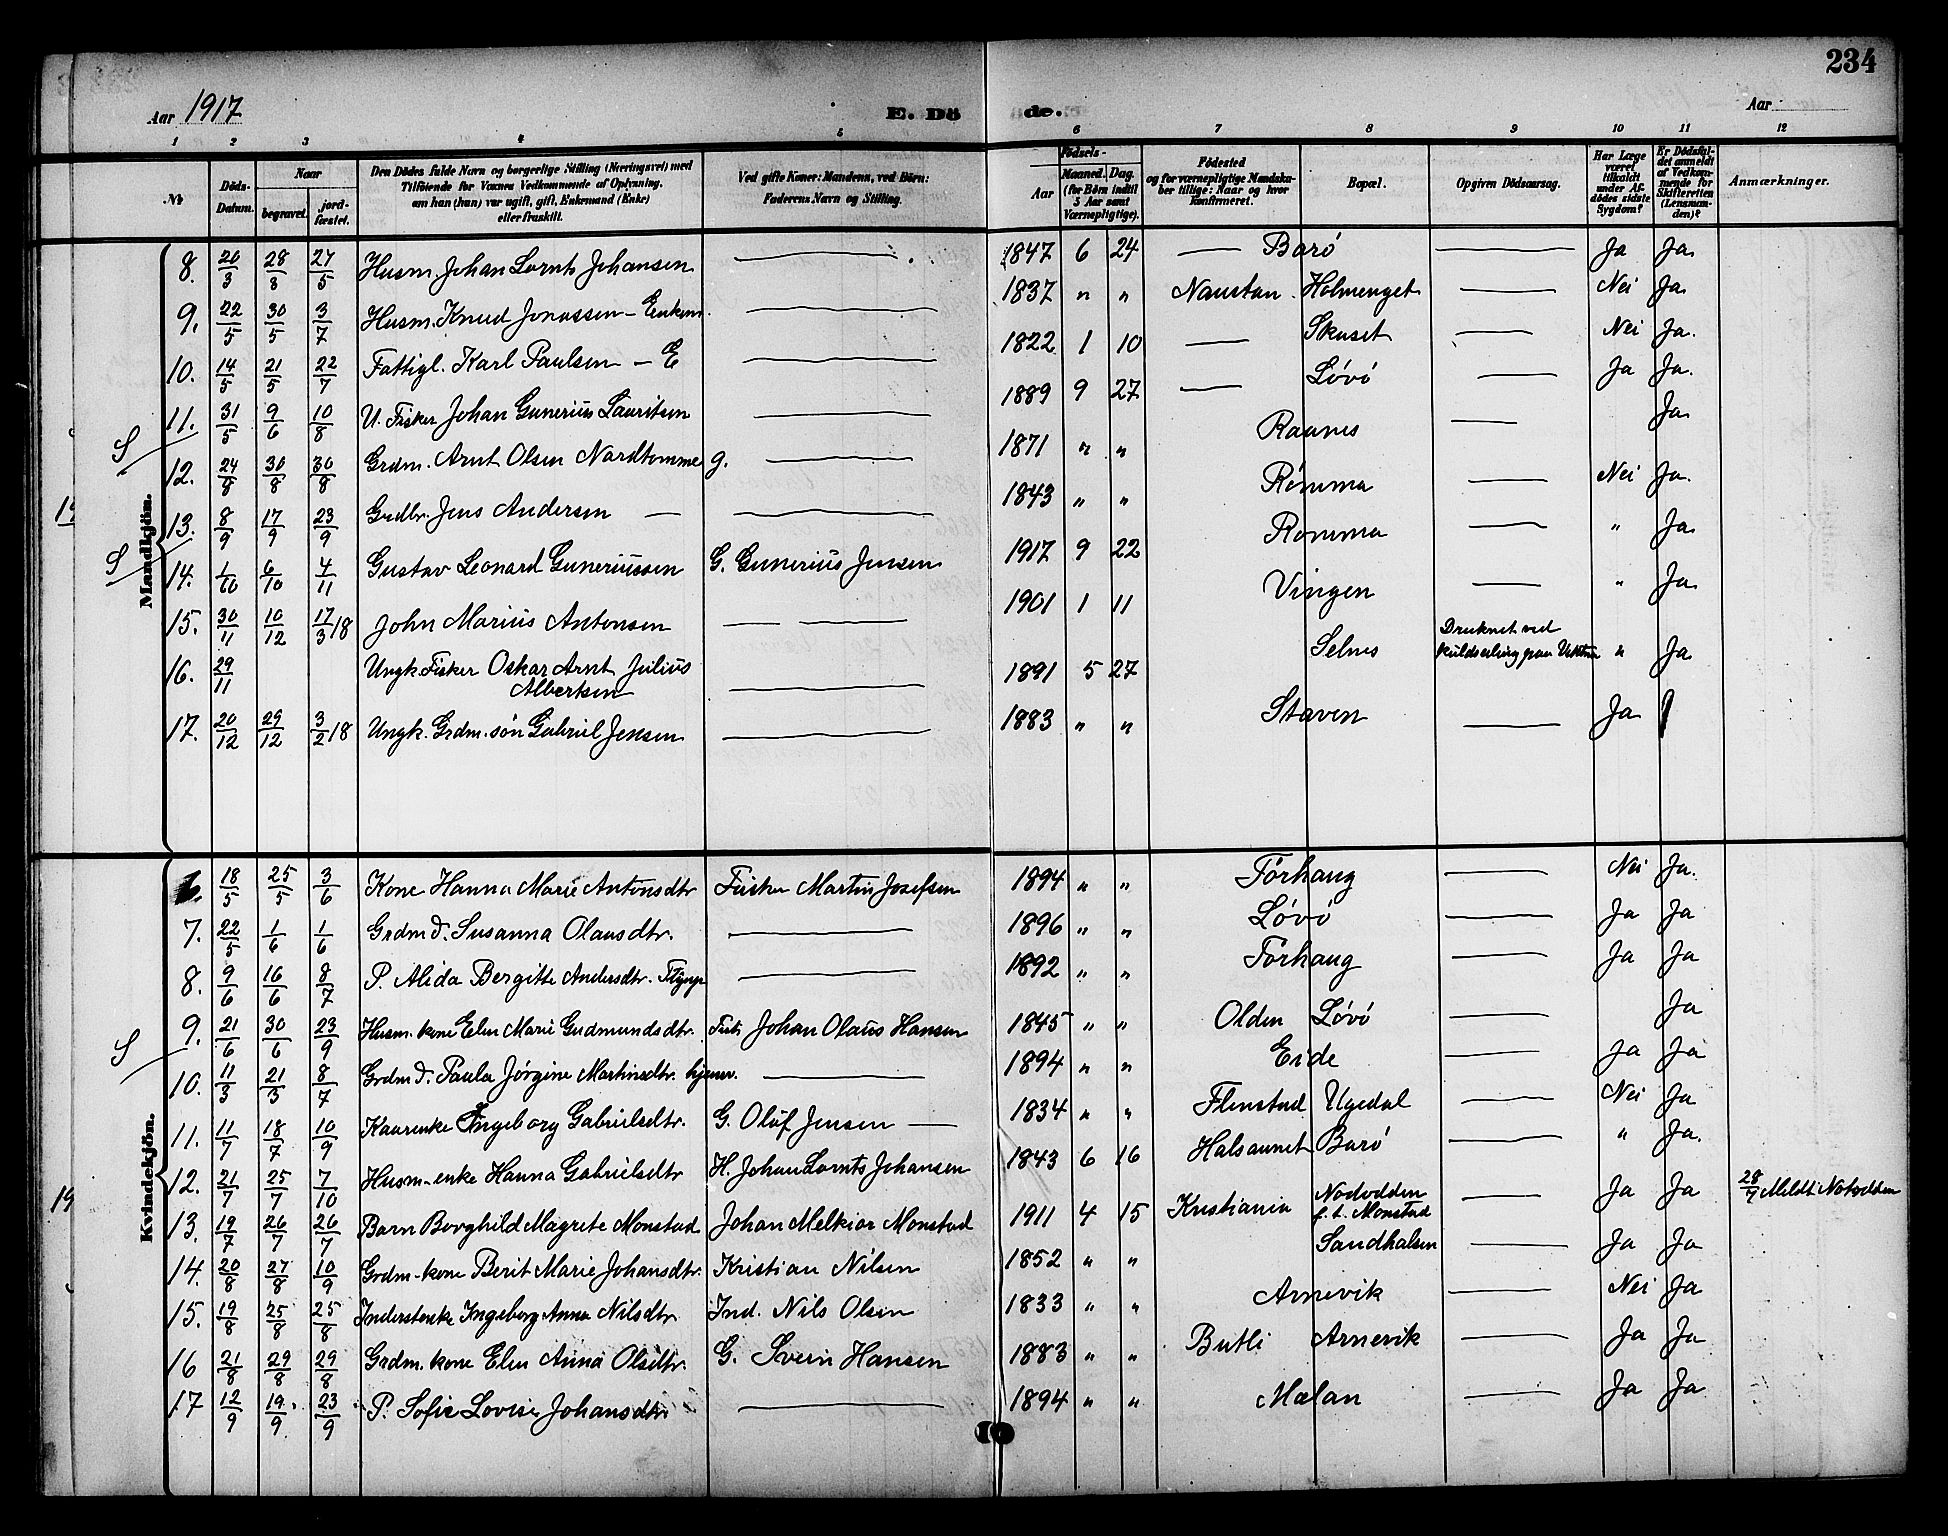 234
Aar 1917
E. Döde.
Aar
1 2 3 4 5 6 7 8 9 10 11 12
№
Döds-Datum.
Naar
begravet.
jordfæstet.
Den Dödes fulde Navn og borgerlige Stilling (Næringsvei) med Tilföiende for Voxnes Vedkommende af Oplysning, om han (hun) var ugift, gift, Enkemand (Enke) eller fraskilt.
Ved gifte Koner: Mandens, ved Börn: Faderens Navn og Stilling.
Födsels-
Aar
Maaned. Dag.
(for Börn indtil 5 Aar samt Værnepligtige).
Födested og for værnepligtige Mandskaber tillige: Naar og hvor konfirmeret.
Bopæl.
Opgiven Dödsaarsag.
Har Læge været tilkaldt under Afdödes sidste Sygdom?
Er Dödsfaldet anmeldt af Vedkommende for Skifteretten (Lensmanden)?
Anmærkninger.
Mandkjön.
8. 20/3 28/3 27/5 Husm. Johan Lornts Johansen — 1847 6 24 — Borö — Ja Ja
9. 22/5 30/5 3/7 Husm. Knud Jonassen - Enkem. — 1837 " " Naustan Holmenget — Nei Ja
10. 14/5 21/5 22/7 Fattigl. Karl Paulsen - E — 1822 1 10 — Skuset — Nei Ja.
11. 31/5 9/6 10/8 U. Fisker Johan Gunerius Lauritsen — 1889 9 27 — Lövö — Ja Ja.
S 12. 24/8 30/8 30/8 Grdm. Arnt Olsen Nordtømme g. — 1871 " " Raanes — Ja
13. 8/9 17/9 23/9 Grdbr. Jens Andersen — — 1843 " " Römma — Nei Ja.
S 14. 1/10 6/10 4/11 Gustav Leonard Guneriussen G. Gunerius Jensen 1917 9 22 Romma — " Ja
15. 30/11 10/12 17/3 18 John Marius Antonsen — — 1901 1 11 Vingen — " Ja
16. 29/11 Ungk. Fisker Oskar Arnt Julius Albertsen — 1891 5 27 Selnes Druknet ved kuldseiling paa " Ja
17. 20/12 29/12 3/2 18 Ungk. Grdm. søn Gabriel Jensen — 1883 " " Staven — Ja
Kvindekjön.
6. 18/5 25/5 3/6 Kone Hanna Marie Antonsdtr Fisker Martin Josefsen 1894 " " Förhaug — Nei Ja.
7. 22/5 1/6 1/6 Grdm d. Susanna Olausdtr. — 1896 " " Lövö — Ja Ja
8. 9/6 16/6 8/7 P. Alida Bergitte Andersdtr. — 1892 " " Förhaug — Ja Ja
9. 21/6 30/6 23/9 Husm. kone Elen Marie Gudmundsdtr. Johan Olaus Hansen 1845 " " Olden Lövö — Ja
S 10. 11/3 21/3 8/7 Grdm d. Paula Jørgine Martinsdtr. hjemv. — 1894 " " Eide — Ja Ja
11. 11/7 18/7 10/9 Kaarenke Ingeborg Gabrielsdtr. G. Oluf Jensen — 1834 " " Flenstad Ugedal — Nei Ja
12. 21/7 25/7 7/10 Husm-enke Hanna Gabrielsdtr H. Johan Lornts Johansen 1843 6 16 Halsaunet Borö — " Ja.
13. 19/7 26/7 26/7 Barn Borghild Magrete Monstad Johan Melkior Monstad 1911 4 15 Kristiania Notodden f. t. Monstad — Ja Ja 28/7 Meldt Notodden
14. 20/8 27/8 10/9 Grdm-kone Berit Marie Johansdtr. Kristian Nilsen 1852 " " Sandhalsen — Ja Ja
15. 19/8 25/8 25/8 Inderstenke Ingeborg Anna Nilsdtr Ind. Nils Olsen 1833 " " Arnevik — Nei Ja
16 21/8 29/8 29/8 Grdm. kone Elen Anna Olsdtr. G. Svein Hansen 1883 " " Butli Arnevik — Ja Ja
17 12/9 19/9 23/9 P. Sofie Lovise Johansdtr — 1894 " " Mælan — Ja Ja